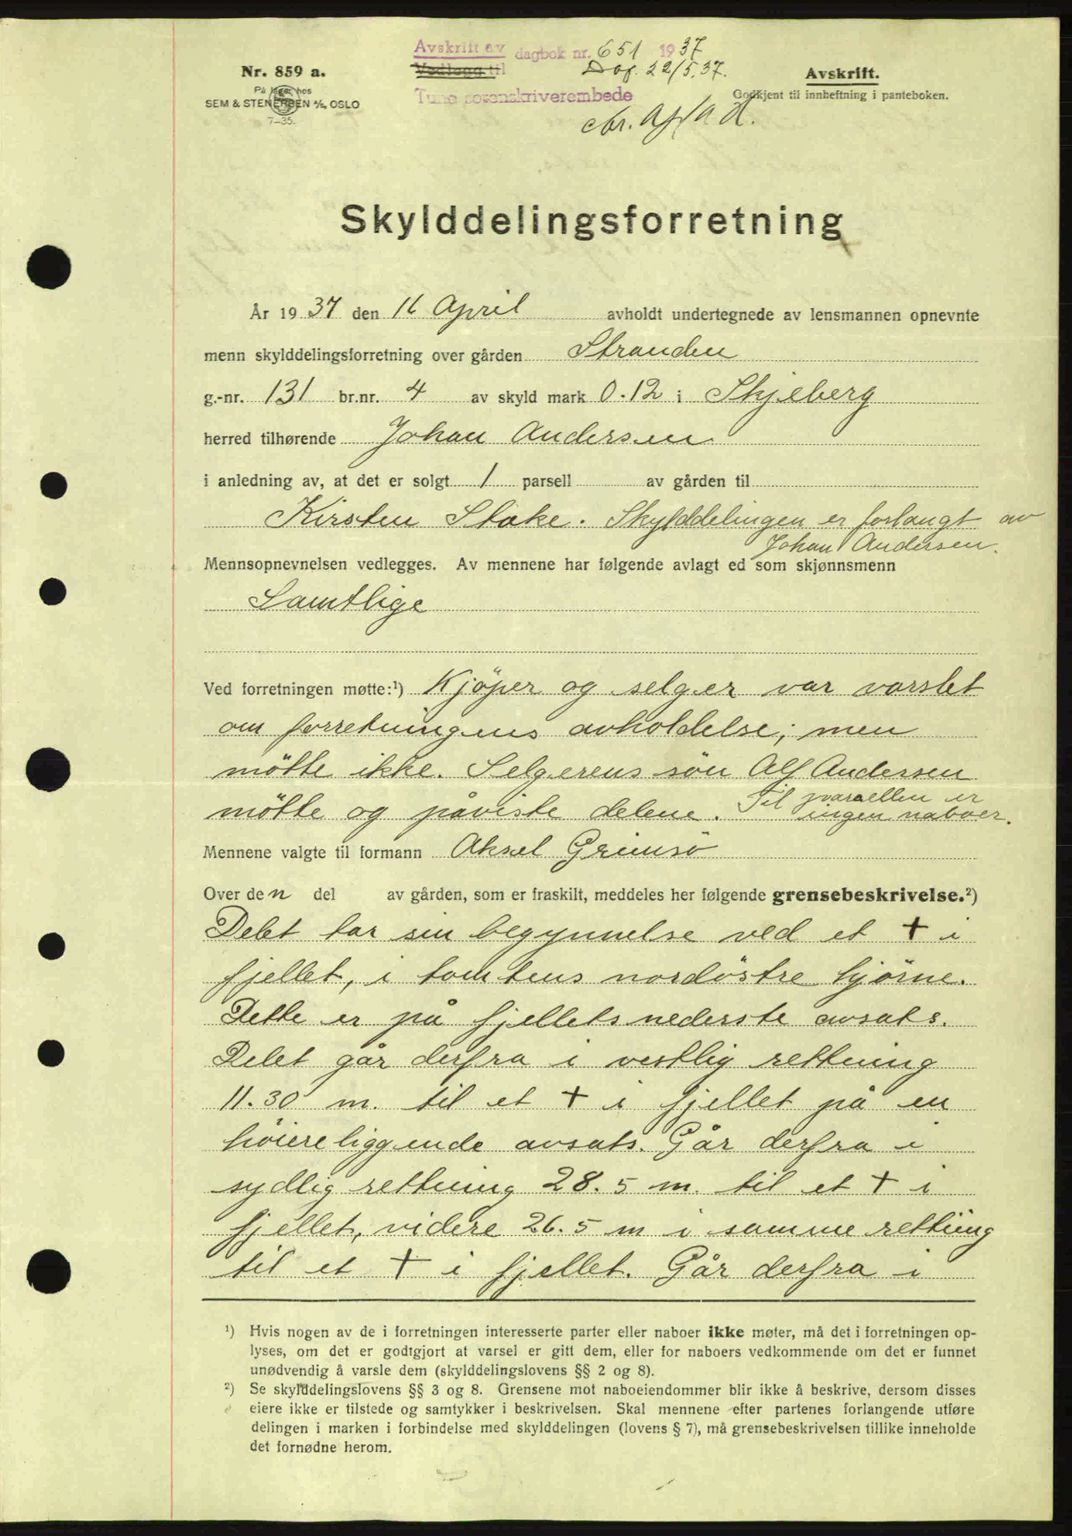 Avskrift av dagbok nr. 651 1937
Vedlegg til Dag. 22/5.37.
Tune sorenskriverembede
Nr. 859 a.
På lager hos
SEM & STENERSEN A/S, OSLO
7-35.
Avskrift.
Godkjent til innheftning i panteboken.
Skylddelingsforretning
År 1937 den 16 April avholdt undertegnede av lensmannen opnevnte
menn skylddelingsforretning over gården Stranden
g.-nr. 131 br.nr. 4 av skyld mark 0.12 i Skjeberg
herred tilhørende Johan Andersen
i anledning av, at det er solgt 1 parsell av gården til
Kirsten Stoke. Skylddelingen er forlangt av
Johan Andersen.
Mennsopnevnelsen vedlegges. Av mennene har følgende avlagt ed som skjønnsmenn
Samtlige
Ved forretningen møtte:¹) Kjöper og selger var varslet
om forretningens avholdelse; men
mötte ikke. Selgerens sön Alf Andersen
mötte og påviste delene. Til parsellen er
ingen naboer.
Mennene valgte til formann Aksel Grimsö
Over den del av gården, som er fraskilt, meddeles her følgende grensebeskrivelse.²)
Delet tar sin begynnelse ved et + i
fjellet, i tomtens nordöstre hjörne.
Dette er på fjellets nederste avsats.
Delet går derfra i vestlig rettning
11.30 m. til et + i fjellet på en
höiereliggende avsats. Går derfra i
sydlig rettning 28.5 m. til et + i
fjellet, videre 26.5 m i samme rettning
til et + i fjellet. Går derfra i
¹) Hvis nogen av de i forretningen interesserte parter eller naboer ikke møter, må det i forretningen op-
lyses, om det er godtgjort at varsel er gitt dem, eller for naboers vedkommende om det er funnet
unødvendig å varsle dem (skylddelingslovens §§ 2 og 8).
²) Se skylddelingslovens §§ 3 og 8. Grensene mot naboeiendommer blir ikke å beskrive, dersom disses
eiere ikke er tilstede og samtykker i beskrivelsen. Skal mennene efter partenes forlangende utføre
delingen i marken i forbindelse med skylddelingen (lovens § 7), må grensebeskrivelsen tillike inneholde
det fornødne herom.